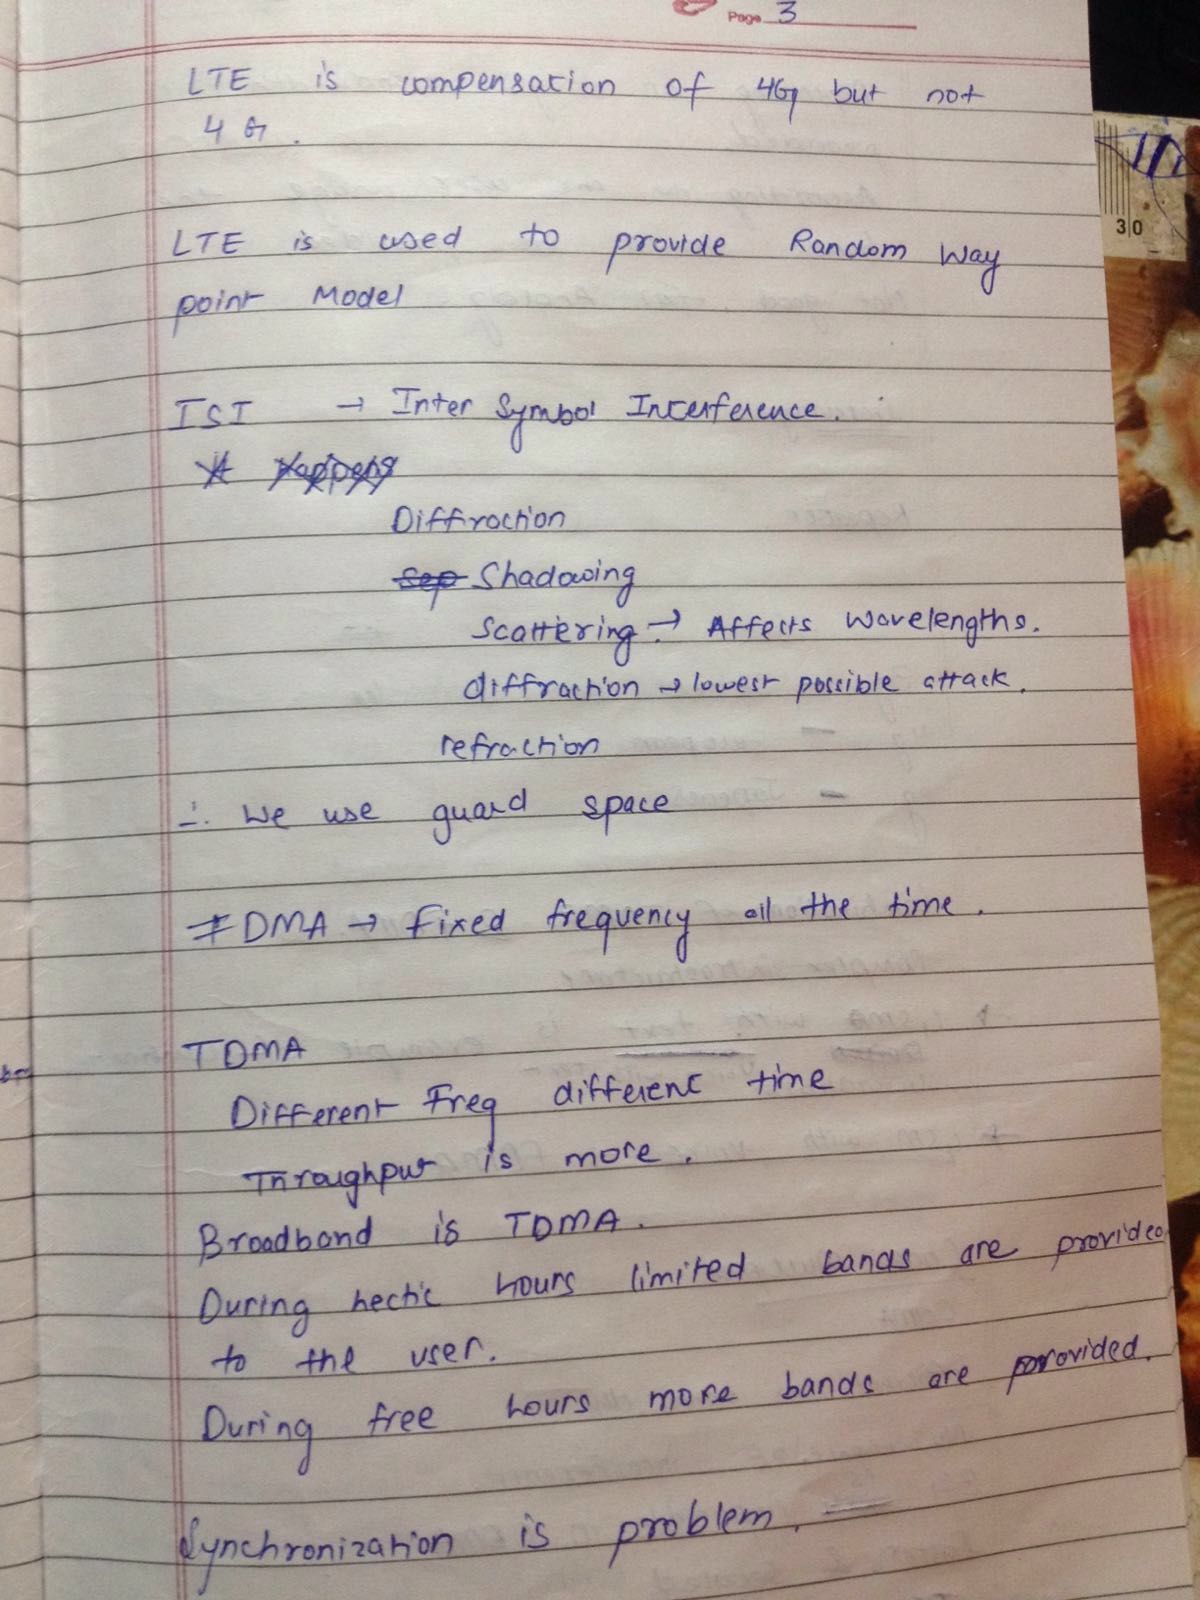 Page 3
LTE is compensation of 4G but not
4G.
LTE is used to provide Random Way
point Model
ISI → Inter Symbol Interference.
Diffraction
Shadowing
Scattering → Affects wavelengths.
diffraction → lowest possible attack.
refraction
∴ We use guard space
FDMA → Fixed frequency all the time.
TDMA
Different Freq different time
Throughput is more.
Broadband is TDMA.
During hectic hours limited bands are provided
to the user.
During free hours more bands are provided.
Synchronization is problem.
30